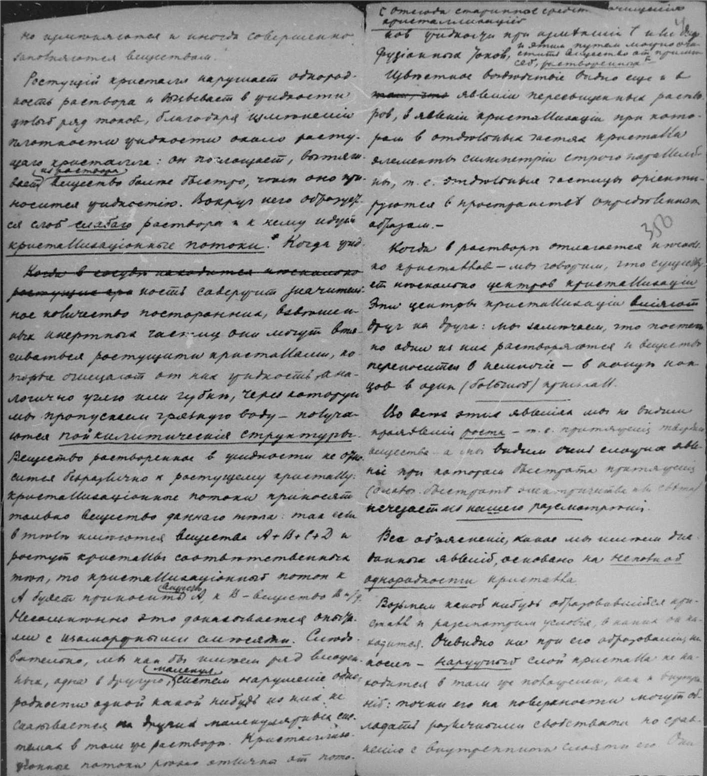 но применяются и иногда совершенно
заполняются веществом.
Ростущiй кристаллъ нарушает однород-
ность раствора и вызывает в жидкости
цѣлый ряд токов, благодаря измѣненiю
плотности жидкости около расту-
щаго кристалла: он поглощает, вытяги-
вает из раствора вещество болѣе быстро, чѣм оно при-
носится жидкостью. Вокруг него образует-
ся слой слабаго раствора и к нему идут
кристаллизацiонные потоки.* Когда жид-
Когда в сосудѣ находится нѣсколько
ростущих кость содержит значитель-
ное количество посторонних, взвѣшен-
ных инертных частиц они могут втя-
гиваться ростущими кристаллами, ко-
торые очищают от них жидкость, ана-
логично углю или губкѣ, через которую
мы пропускаем грязную воду – получа-
ются пойкилитическiя структуры.
Вещество растворенное в жидкости не отно-
сится безразлично к ростущему кристаллу.
Кристаллизацiонные потоки приносят
только вещество даннаго тѣла: так если
в тѣлѣ имѣются вещества A+B+C+D и
ростут кристаллы соответственных
тѣл, то кристаллизацiонный поток к
A будет приносить вещество A, к B – вещество B и т.д.
Несомнѣнно это доказывается опыта-
ми с изоморфными смѣсями. Слѣдо-
вательно, мы как бы имѣем ряд вложен-
ных, одна в другую, систем нарушенiе одно-
родности одной какой нибудь из них не
сказывается на других молекулярных сис-
темах в том же растворѣ. Кристаллиза-
цiонные потоки рѣзко отличны от пото-
с Отсюда старинное средство очищенiя
кристаллизацiей
ков жидкости при измѣненiи t и от диф-
фузiонных токов,
Цѣпное видно еще и в
явленiи пересыщенных раство-
ров, в явленiи кристаллизацiи при кото-
ром в отдѣльных частях кристалла
элементы симметрiи строго параллель-
ны, т.е. отдѣльные частицы орiенти-
руются в пространствѣ опредѣленным
образом.–
350
Когда в растворѣ отлагается нѣсколь-
ко кристаллов – мы говорим, что существу-
ет нѣсколько центров кристаллизацiи
Эти центры кристаллизацiи влiяют
друг на друга: мы замѣчаем, что постепен-
но одни из них растворяются и вещество
переносится в немногiе – в концѣ кон-
цов в один (большой) кристалл.
Во всѣх этих явленiях мы не видим
проявленiй роста – т.е. притяженiя твердым
веществом – а мы видим очень сложныя явле-
нiя при котором быстрота притяженiя
исчезает из нашего разсмотрѣнiя.
Все объясненiе, какое мы имѣем для
данных явленiй, основано на неполной
однородности кристалла.
Возьмем какой нибудь образовавшiйся кри-
сталл и разсмотрим условiя, в каких он на-
ходится. Очевидно ни при его образованiи, ни
послѣ – наружный слой кристалла не на-
ходится в том же положенiи, как и внутрен-
нiй: точки его на поверхности могут об-
ладать различными свойствами по срав-
ненiю с внутренними слоями его.